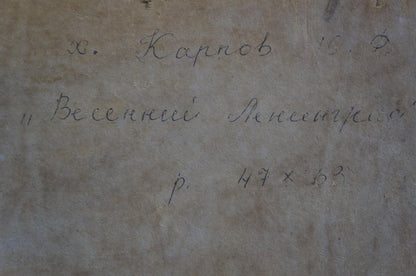 х. Карпов Ю. Ф.
„ Весенний Ленинград
р. 47 х 62